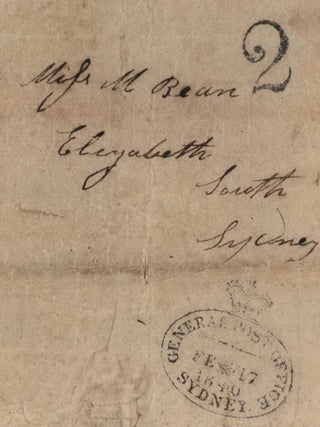 Miss M Bean
2
Elizabeth
South
Sydney
GENERAL POST OFFICE
FE 17
1840
SYDNEY